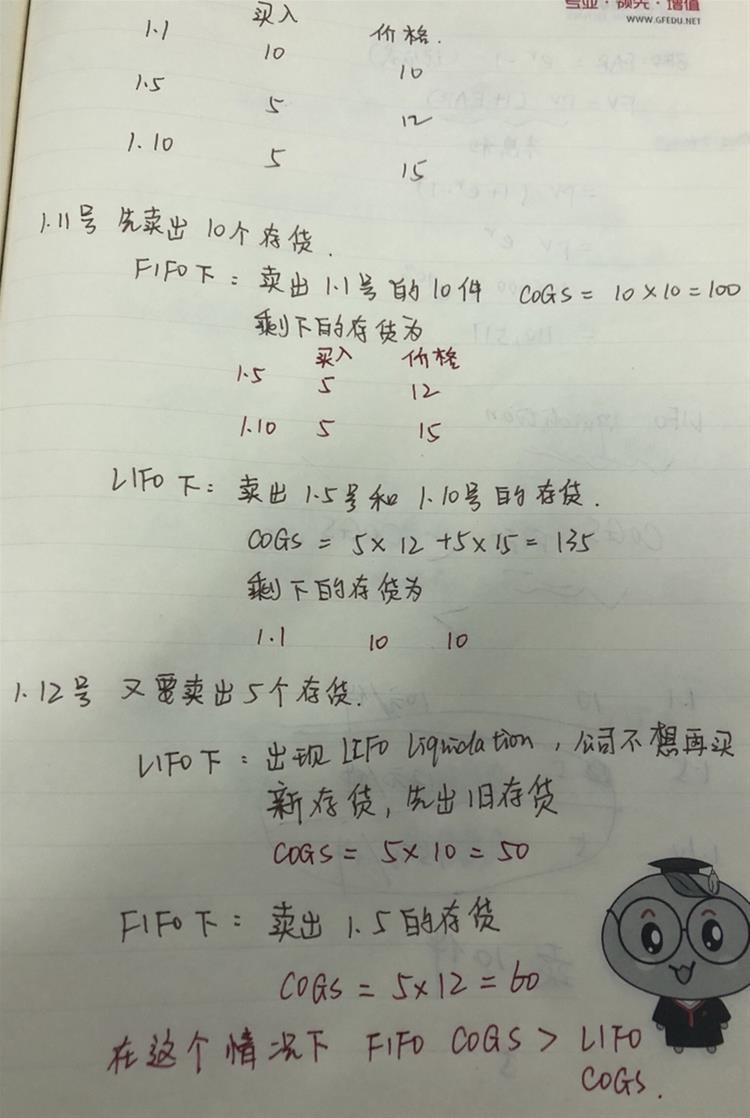 专业·领先·增值
WWW.GFEDU.NET
买入 价格.
1.1 10 10
1.5 5 12
1.10 5 15
1.11号 先卖出10个存货.
FIFO下: 卖出1.1号的10件 COGS = 10×10=100
剩下的存货为
买入 价格
1.5 5 12
1.10 5 15
LIFO下: 卖出1.5号和1.10号的存货.
COGS = 5×12 +5×15 = 135
剩下的存货为
1.1 10 10
1.12号 又要卖出5个存货.
LIFO下: 出现LIFO liquidation, 公司不想再买
新存货, 先出旧存货
COGS = 5×10 = 50
FIFO下: 卖出1.5的存货
COGS = 5×12 = 60
在这个情况下 FIFO COGS > LIFO
COGS.